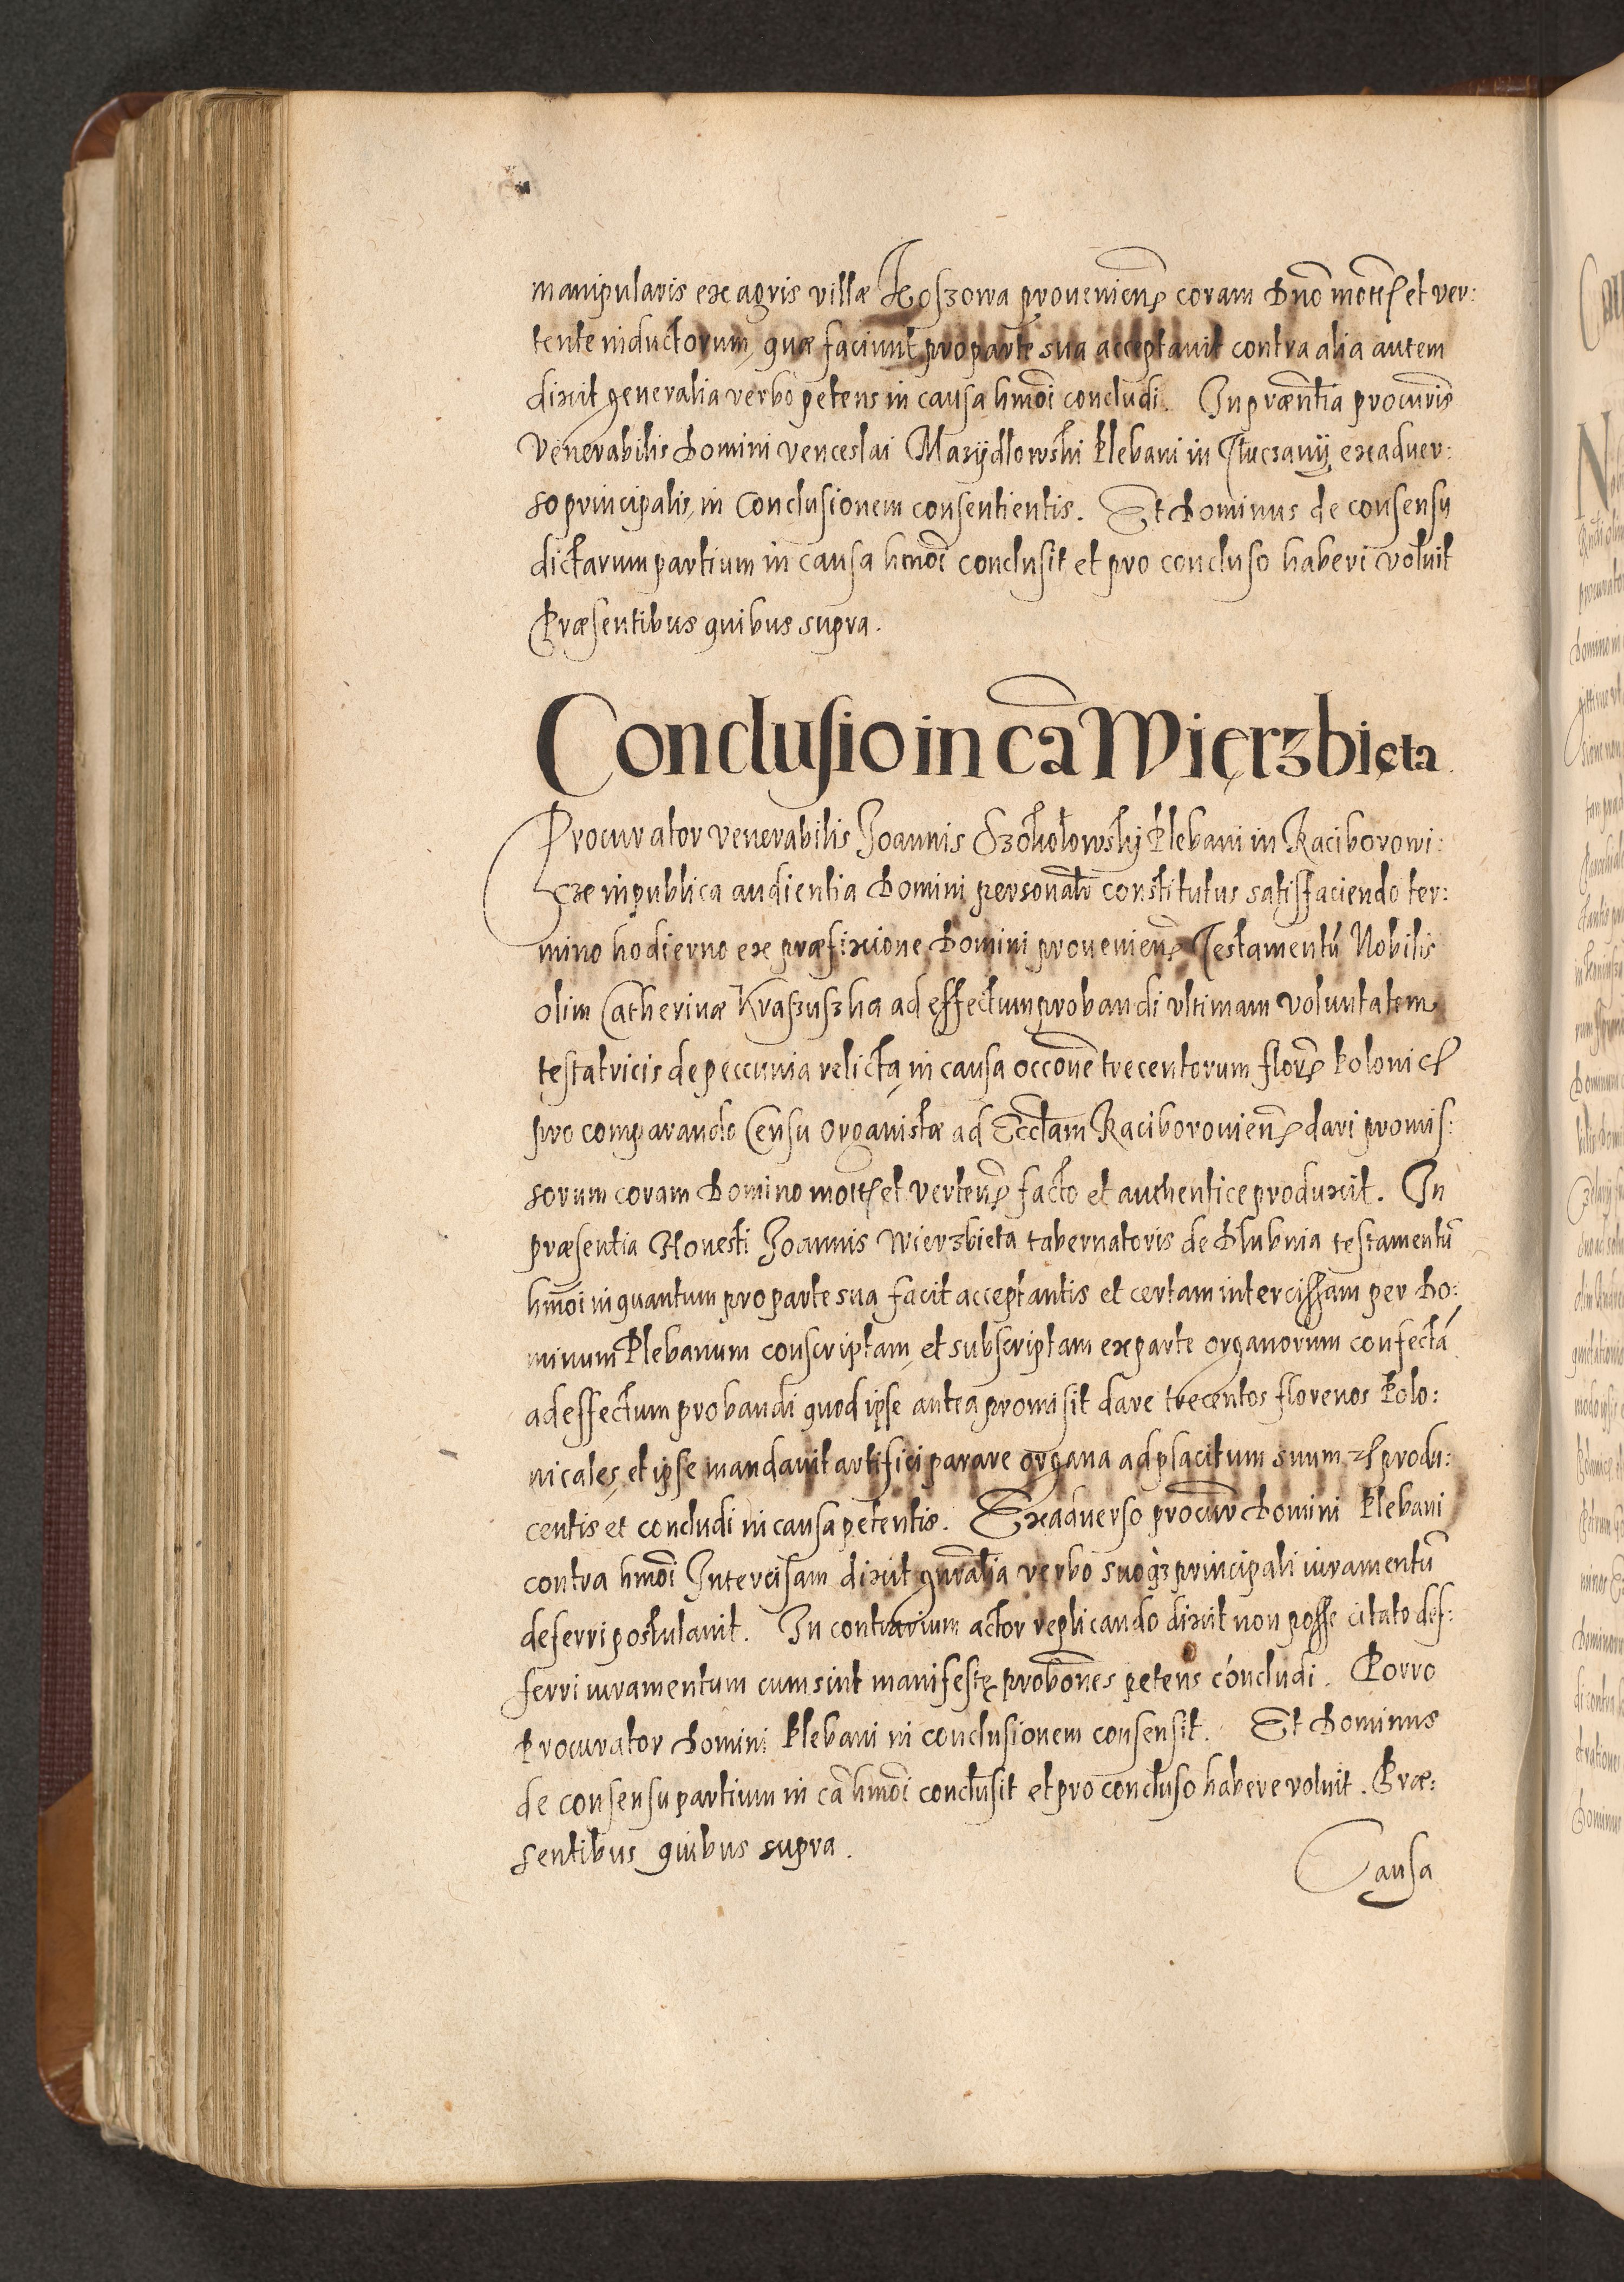 manipularis ex agris villæ Koszowa prouenien̄ coram Dn̄o mot̄ et ver:
tente inductorum, quæ faciunt pro parte sua acceptauit contra alia autem
dixit generalia verbo petens in causa hmōi concludi. In præn̄tia procur̄is
Venerabilis Domini venceslai Mazÿdlowski Plebani in Tluczanÿ, ex aduer:
so principalis, in Conclusionem consentientis. Et Dominus de consensu
dictarum partium in causa hmōi conclusit et pro concluso haberi voluit
Præsentibus quibus supra.
Conclusio in cā Więrzbięta.
Procurator venerabilis Joannis Szokołowskÿ Plebani in Raciborowi:
cze in publica audientia Domini personalr̄ constitutus satisfaciendo ter:
mino hodierno ex præfixione Domini prouenien̄ Testamentū Nobilis
olim Catherinæ Kraszuszka ad effectum probandi vltimam voluntatem
testatricis de peccunia relicta, in causa occōne trecentorum flor̄ Polonic̄
pro comparando Censu Organistæ ad Eccl̄am Raciborouien̄ dari promis:
sorum coram Domino mot̄ et verten̄ facto et authentice produxit. In
præsentia Honesti Joannis Wierzbieta tabernatoris de Dlubnia testamentū
hmōi in quantum pro parte sua facit acceptantis et certam intercissam per Do:
minum Plebanum conscriptam, et subscriptam ex parte organorum confectā
ad effectum probandi quod ipse antea promisit dare trecentos florenos Polo:
nicales, et ipse mandauit artifici parare organa ad placitum suum etc produ:
centis et concludi in causa petentis. Ex aduerso procur̄ Domini Plebani
contra hmōi Intercisam dixit gnr̄alia verbo suoq3 principali iuramentū
deferri postulauit. In contrarium actor replicando dixit non posse citato def:
ferri iuramentum cum sint manifestę probōnes petens concludi. Porro
Procurator Domini Plebani in conclusionem consensit. Et Dominus
de consensu partium in cā hmōi conclusit et pro concluso habere voluit. Præ:
sentibus quibus supra.
Causa